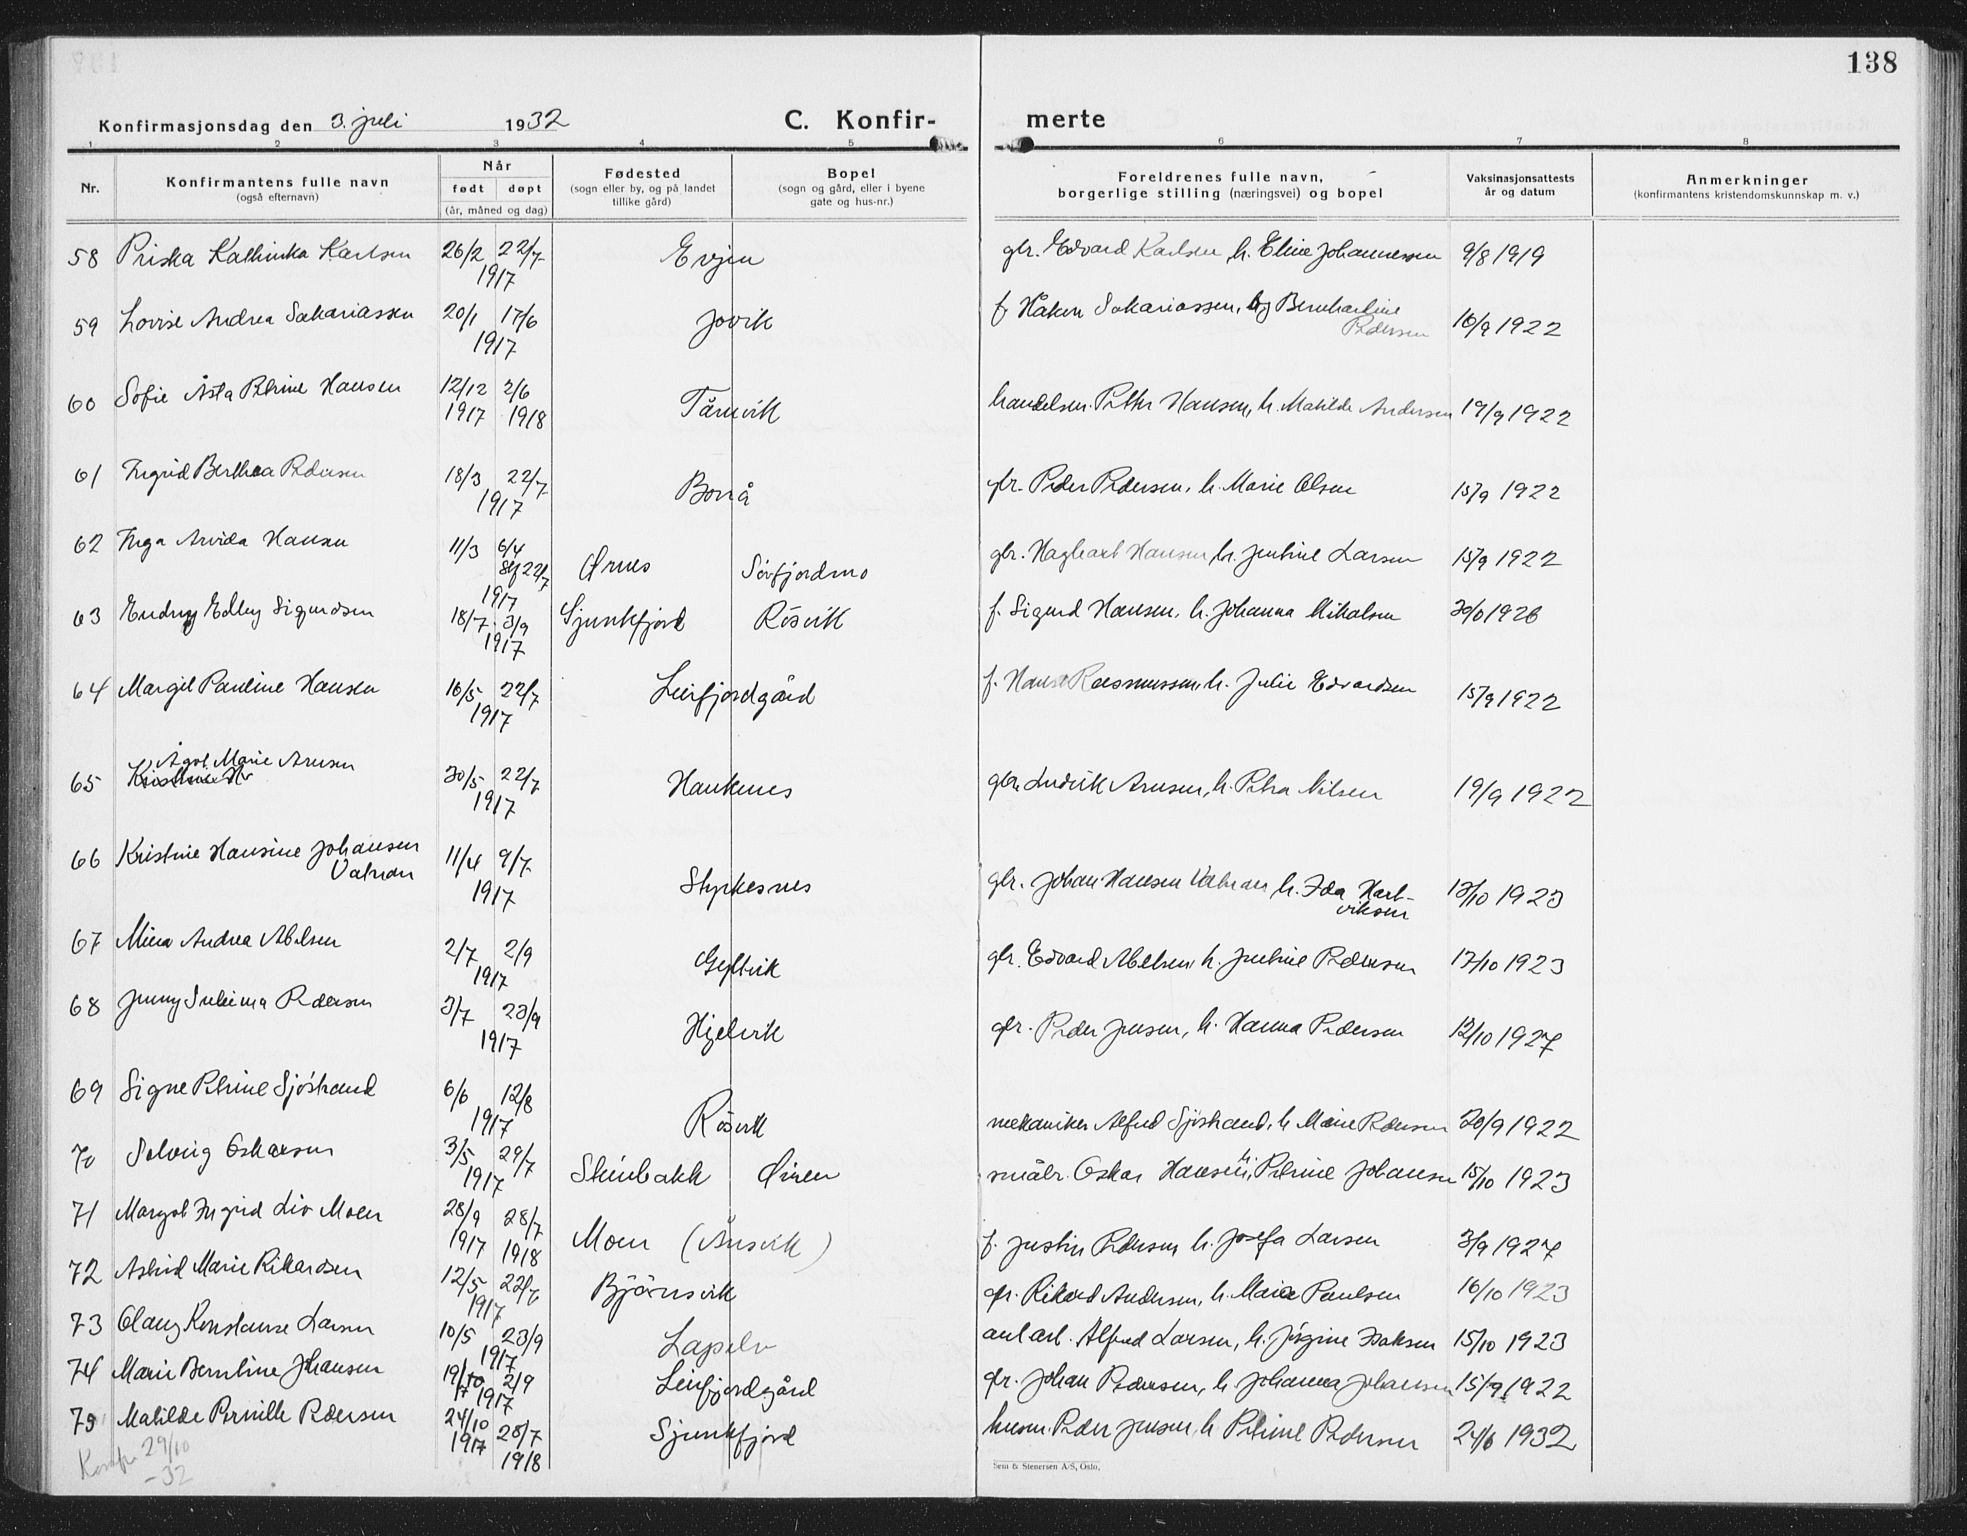 138
Konfirmasjonsdag den 3. juli 1932 C. Konfir- merte
1 2 3 4 5 6 7 8
Nr. Konfirmantens fulle navn (også efternavn) Når født døpt (år, måned og dag) Fødested (sogn eller by, og på landet tillike gård) Bopel (sogn og gård, eller i byene gate og hus-nr.) Foreldrenes fulle navn, borgerlige stilling (næringsvei) og bopel Vaksinasjonsattests år og datum Anmerkninger (konfirmantens kristendomskunnskap m. v.)
58 Priska Kathinka Karlsen 26/2 22/7 1917 Evjen gbr. Edvard Karlsen, h. Eline Johannessen 9/8 1919
59 Lovise Andrea Sakariassen 20/1 17/6 1917 Jovik f. Håken Sakariassen, hj Bernhardine Pedersen 16/9 1922
60 Sofie Åsta Petrine Hansen 12/12 1917 2/6 1918 Tårnvik handelsm. Petter Hansen, h. Matilde Andersen 19/9 1922
61 Ingrid Berthea Pedersen 18/3 22/7 1917 Borrå gbr. Peder Pedersen, h. Marie Olsen 15/9 1922
62 Inga Arvida Hansen 11/3 6/4 22/7 1917 Ørnes Sørfjordmo gbr. Hagbart Hansen, h. Jentine Larsen 15/9 1922
63 Endry Edley Sigurdsen 18/7 3/9 1917 Sjunkfjord Røsvik f. Sigurd Hansen, h. Johanna Mikalsen 1926
64 Margit Pauline Hansen 16/5 22/7 1917 Leirfjordgård f. Hans Rasmussen, h. Julie Edvardsen 15/9 1922
65 Kristine H Ågot Marie Arnsen 30/5 22/7 1917 Haukenes gbr. Ludvik Arnsen, h. Petra Nilsen 19/9 1922
66 Kristine Hansine Johansen Vatnan 11/4 9/7 1917 Styrkesnes gbr. Johan Hansen Vatnan, h. Ida Hartviksen 13/10 1923
67 Mina Andrea Abelsen 2/7 2/9 1917 Gyltvik gbr. Edvard Abelsen, h. Jentine Pedersen 17/10 1923
68 Jenny Pedersen 3/7 23/9 1917 Hjelvik gbr. Peder Jensen, h. Hanna Pedersen 12/10 1927
69 Signe Petrine Sjøstrand 6/6 12/8 1917 Røsvik mekaniker Alfred Sjøstrand, h. Marie Pedersen 20/9 1922
70 Solveig Oskarsen 3/5 29/7 1917 Steinbakk Øiren småbr. Oskar Hansen, h. Petrine Johansen 15/10 1923
71 Margot Ingrid Liv Moen 28/9 1917 28/7 1918 Moen (Ånsvik) f. Justin Pedersen, h. Josefa Larsen 3/9 1927
72 Astrid Marie Rikardsen 12/5 22/7 1917 Bjørnsvik gbr. Rikard Andersen, h. Marie Paulsen 16/10 1923
73 Olaug Konstanse Larsen 10/5 23/9 1917 Lapelv anl.arb. Alfred Larsen, h. Jørgine Isaksen 15/10 1923
74 Marie Berntine Johansen 19/10 7 2/9 1917 Leirfjordgård gbr. Johan Pedersen, h. Johanna Johansen 15/9 1922
75 Matilde Pernille Pedersen 24/10 1917 28/7 1918 Sjunkfjord husm. Peder Jensen, h. Petrine Pedersen 24/6 1932
Konf. 29/10
-32
Sem & Stenersen A/S, Oslo.